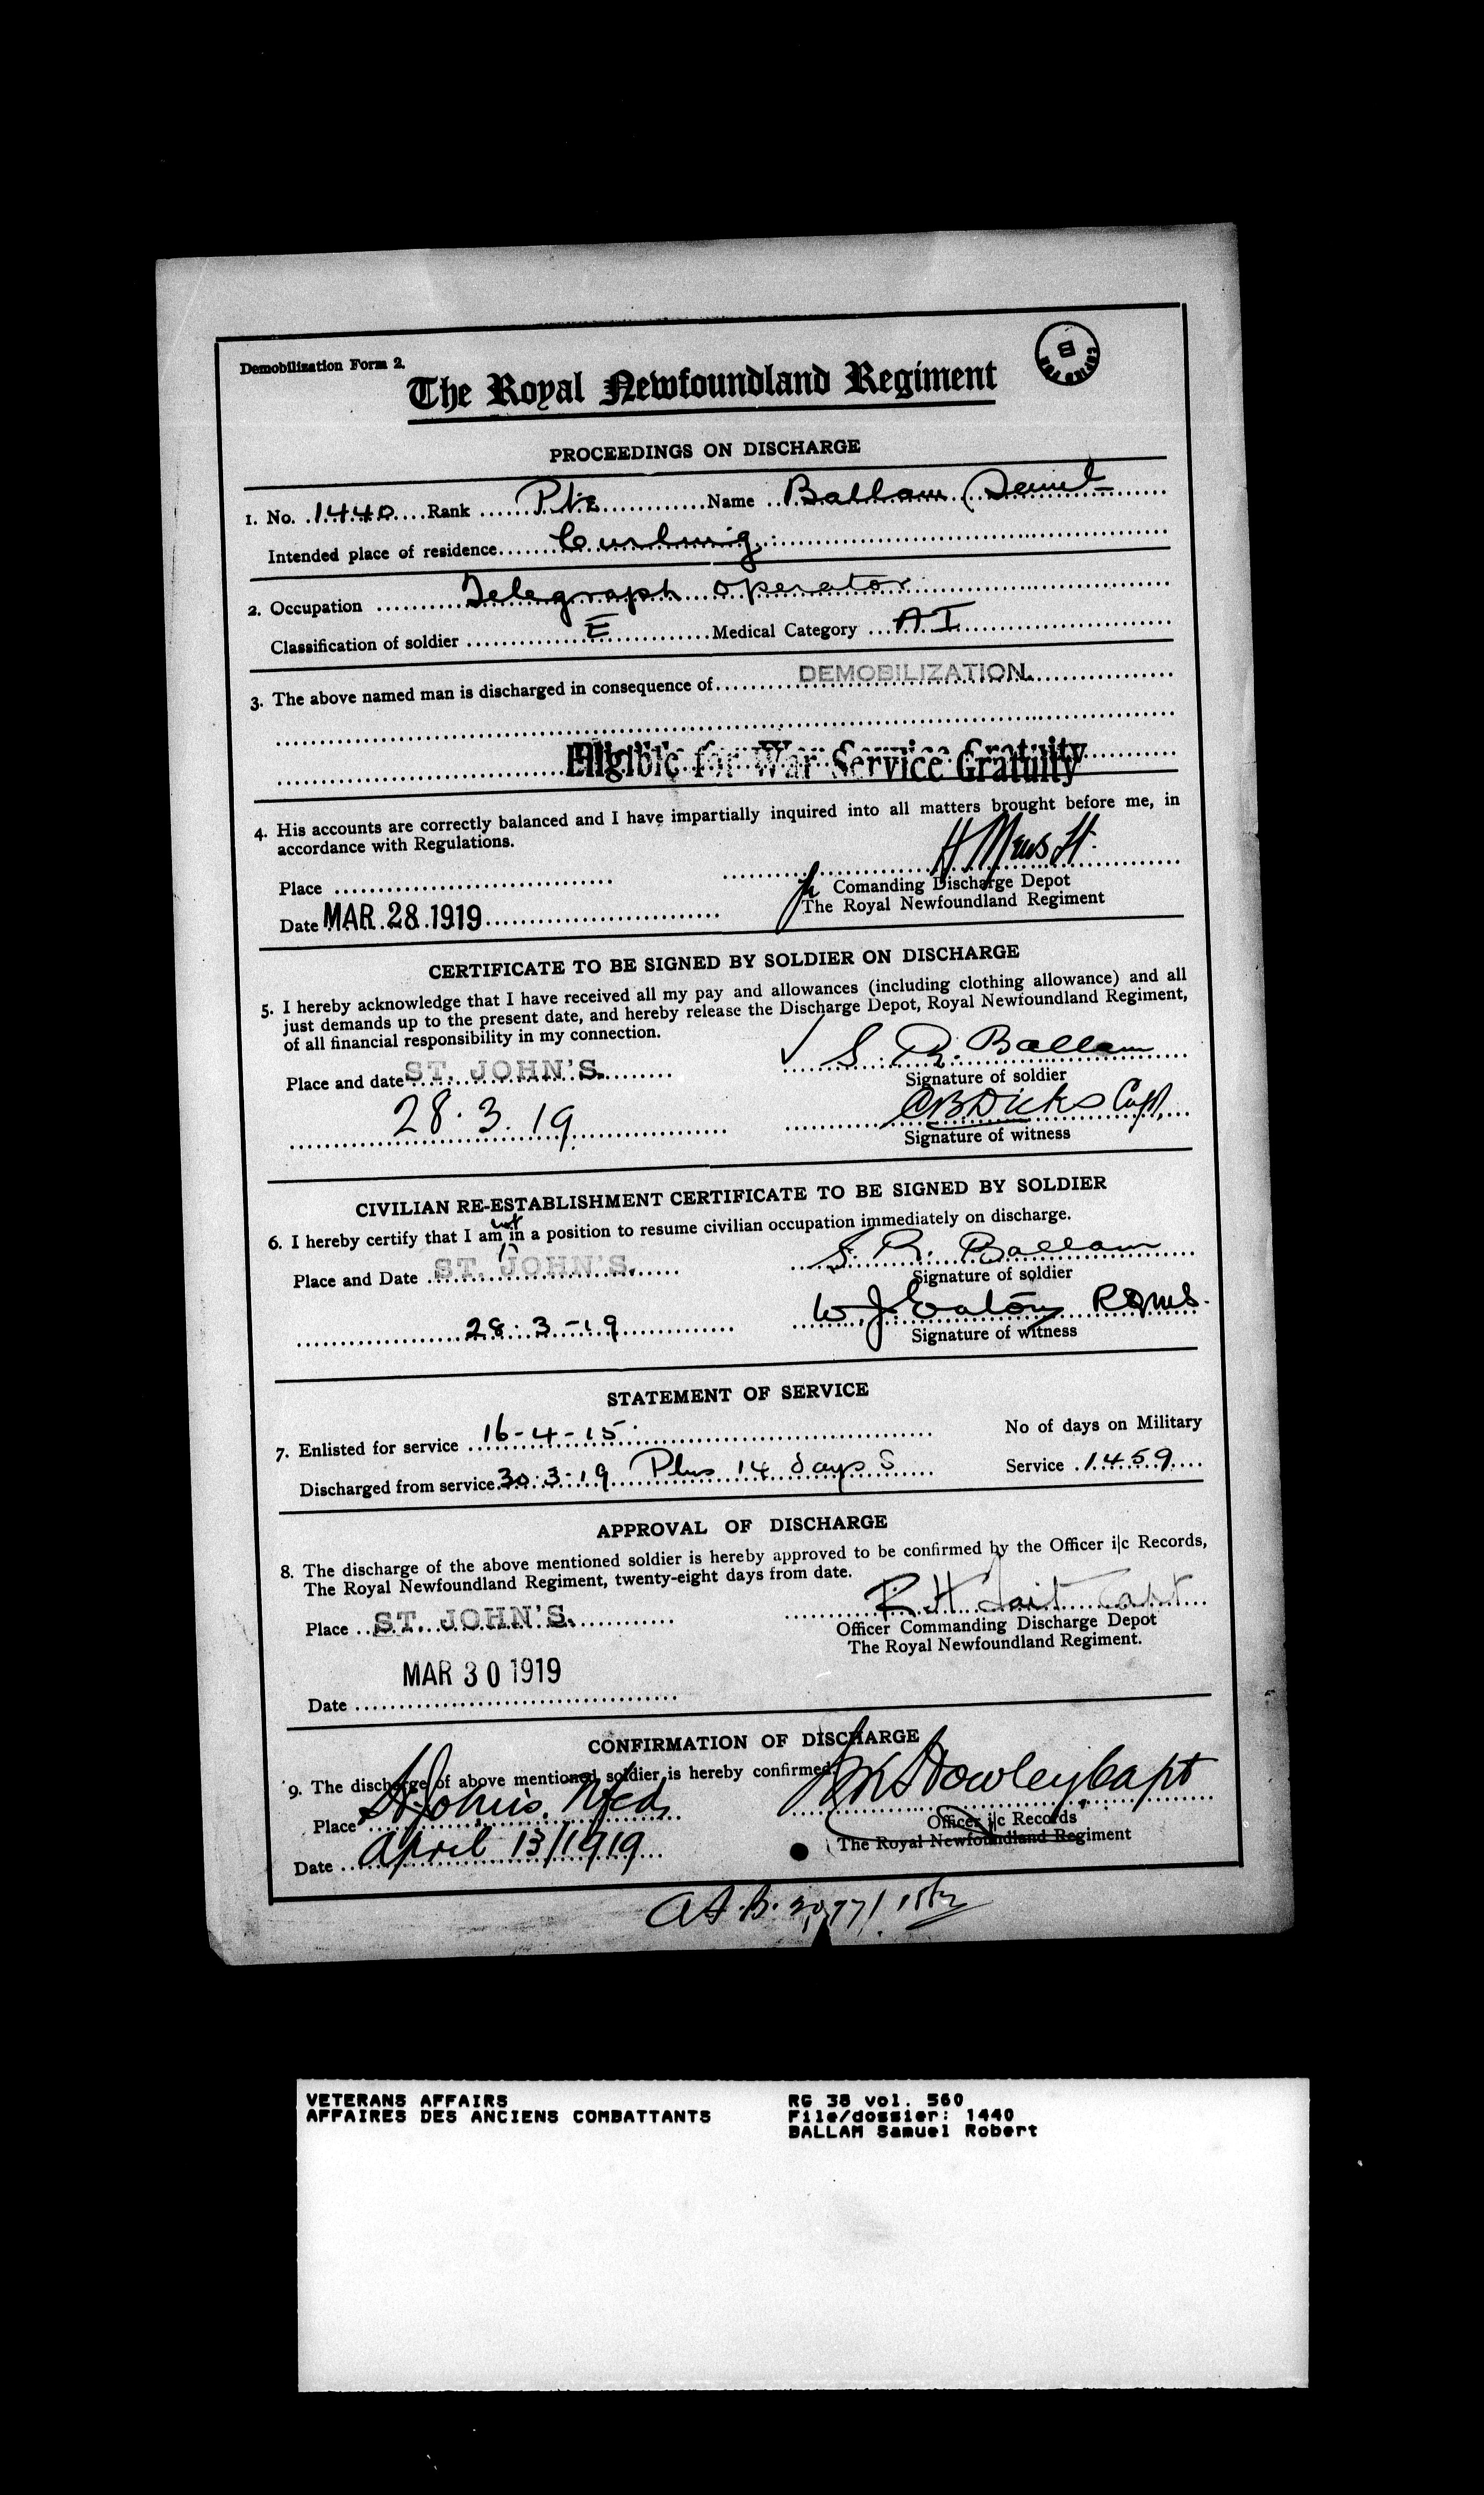 Demobilization Form 2.
The Royal Newfoundland Regiment
PROCEEDINGS ON DISCHARGE
1. No. 1440 Rank Pte Name Ballam Saml
Intended place of residence Curling
2. Occupation Telegraph operator
Classification of soldier E Medical Category A I
3. The above named man is discharged in consequence of DEMOBILIZATION.
Eligible for War Service Gratuity
4. His accounts are correctly balanced and I have impartially inquired into all matters brought before me, in
accordance with Regulations.
H Mews Lt.
Place
Comanding Discharge Depot
The Royal Newfoundland Regiment
Date MAR. 28. 1919
CERTIFICATE TO BE SIGNED BY SOLDIER ON DISCHARGE
5. I hereby acknowledge that I have received all my pay and allowances (including clothing allowance) and all
just demands up to the present date, and hereby release the Discharge Depot, Royal Newfoundland Regiment,
of all financial responsibility in my connection.
Place and date ST. JOHN'S. S. R. Ballam
Signature of soldier
28. 3. 19. Dicks Capt.
Signature of witness
CIVILIAN RE-ESTABLISHMENT CERTIFICATE TO BE SIGNED BY SOLDIER
6. I hereby certify that I am not in a position to resume civilian occupation immediately on discharge.
Place and Date ST. JOHN'S. S. R. Ballam
Signature of soldier
28. 3 - 19 W. J. Eaton RQMS.
Signature of witness
STATEMENT OF SERVICE
7. Enlisted for service 16-4-15 No of days on Military
Discharged from service 30.3.19 Plus 14 days S Service 1459
APPROVAL OF DISCHARGE
8. The discharge of the above mentioned soldier is hereby approved to be confirmed by the Officer i|c Records,
The Royal Newfoundland Regiment, twenty-eight days from date.
Place ST. JOHN'S. R. H. Tait Capt
Officer Commanding Discharge Depot
The Royal Newfoundland Regiment.
MAR 30 1919
Date
CONFIRMATION OF DISCHARGE
9. The discharge of above mentioned soldier is hereby confirmed
Place St John's. Nfld Howley Capt
Officer i|c Records
The Royal Newfoundland Regiment
Date April 13/1919
VETERANS AFFAIRS RG 38 vol. 560
AFFAIRES DES ANCIENS COMBATTANTS File/dossier: 1440
BALLAM Samuel Robert